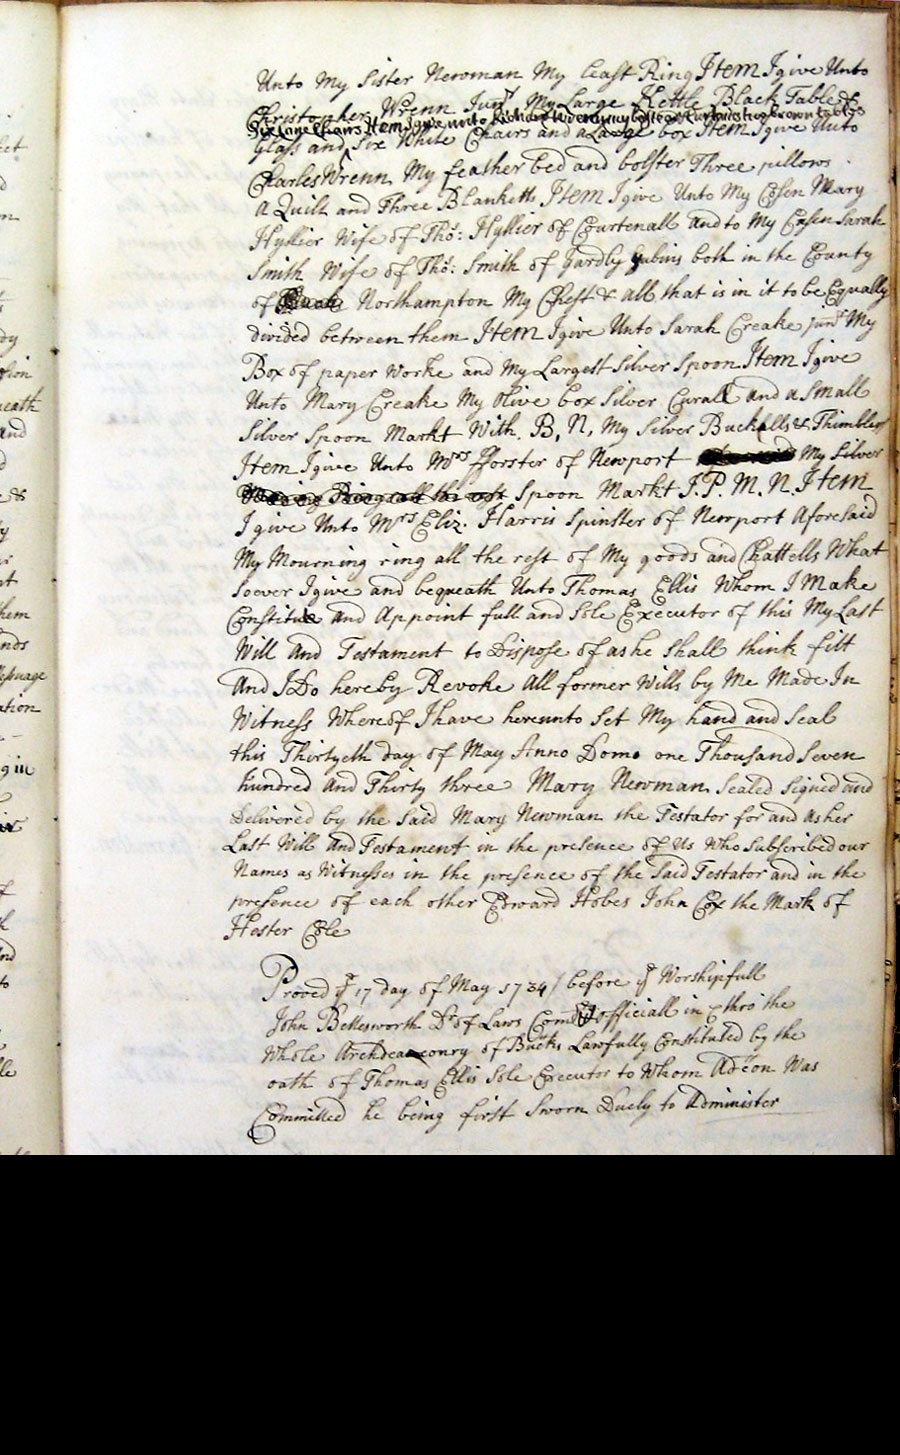 Unto My Sister Newman My least Ring Item I give Unto
Christopher Wrenn Junr My Large Kettle Black Table &
Six Cane Chairs Item I give unto Richard Wrenn my best two brown tables
Glass and Six White Chairs and a Large box Item I give Unto
Charles Wrenn My feather bed and bolster Three pillows
a Quilt and Three Blanketts Item I give Unto My Cosen Mary
Hyllier Wife of Thos: Hyllier of Courtenall and to My Cosen Sarah
Smith Wife of Thos: Smith of Yardly Gubins both in the County
of Northampton My Chest & all that is in it to be Equally
divided between them Item I give Unto Sarah Creake junr My
Box of paper Worke and My Largest Silver Spoon Item I give
Unto Mary Creake My Olive box Silver Curall and a Small
Silver Spoon Markt With B, N, My Silver Buckells & Thimbler
Item I give Unto Mrs fforster of Newport My Silver
Spoon Markt I. P. M. N. Item
I give Unto Mrs Eliz. Harris Spinster of Newport Aforesaid
My Mourning ring all the rest of My goods and Chattells What
soever I give and bequeath Unto Thomas Ellis Whom I Make
Constitute and Appoint full and Sole Executor of this My Last
Will and Testament to Dispose of as he Shall think fitt
And I Do hereby Revoke All former Wills by Me Made In
Witness Whereof I have hereunto Set My hand and Seal
this Thirtyeth day of May Anno Domo one Thousand Seven
hundred and Thirty three Mary Newman Sealed Signed and
Delivered by the Said Mary Newman the Testator for and as her
Last Will and Testament in the presence of Us Who Subscribed our
Names as Witnesses in the presence of the Said Testator and in the
presence of each other Edward Hobes John Cox the Mark of
Hester Cole
Proved ye 17 day of May 1734 before ye Worshipfull
John Bettesworth Dr of Laws officiall in & thro the
Whole Archdeaconry of Bucks Lawfully Constituted by the
oath of Thomas Ellis Sole Executor to Whom Adcon Was
Committed he being first Sworn Duely to Administer